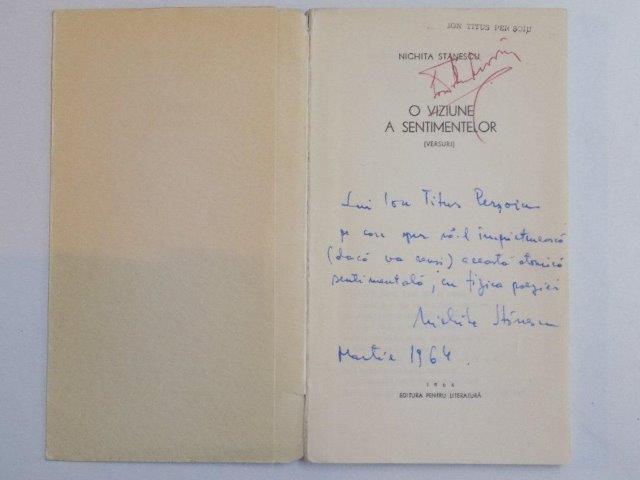 ION TITUS PER ȘOIU
NICHITA STĂNESCU
O VIZIUNE
A SENTIMENTELOR
(VERSURI)
Lui Ion Titus Perșoiu
pe care sper să-l împrietenească
(dacă va reuși) această atomică
sentimentală, cu fizica poeziei
Nichita Stănescu
Martie 1964.
1964
EDITURA PENTRU LITERATURĂ